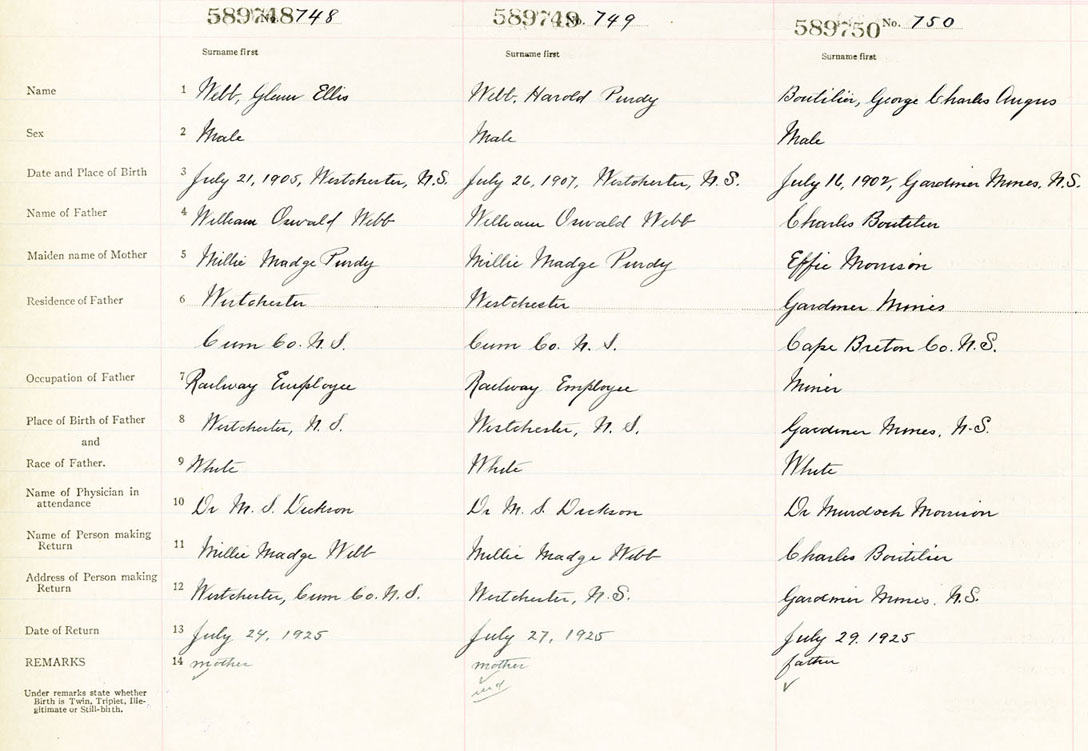 589748 No. 748 589749 No. 749 589750 No. 750
Surname first Surname first Surname first
Name 1 Webb, Glenn Ellis Webb, Harold Purdy Boutilier, George Charles Angus
Sex 2 Male Male Male
Date and Place of Birth 3 July 21, 1905, Westchester, N.S. July 26, 1907, Westchester, N.S. July 16, 1902, Gardiner Mines, N.S.
Name of Father 4 William Oswald Webb William Oswald Webb Charles Boutilier
Maiden name of Mother 5 Millie Madge Purdy Millie Madge Purdy Effie Morrison
Residence of Father 6 Westchester Westchester Gardiner Mines
Cum Co. N.S. Cum Co. N.S. Cape Breton Co. N.S.
Occupation of Father 7 Railway Employee Railway Employee Miner
Place of Birth of Father 8 Westchester, N.S. Westchester, N.S. Gardiner Mines, N.S.
and
Race of Father. 9 White White White
Name of Physician in
attendance 10 Dr M. S. Dickson Dr M. S. Dickson Dr Murdoch Morrison
Name of Person making
Return 11 Millie Madge Webb Millie Madge Webb Charles Boutilier
Address of Person making
Return 12 Westchester, Cum Co. N.S. Westchester, N.S. Gardiner Mines, N.S.
Date of Return 13 July 24, 1925 July 27, 1925 July 29. 1925
REMARKS 14 mother mother father
Under remarks state whether
Birth is Twin, Triplet, Ille-
gitimate or Still-birth.